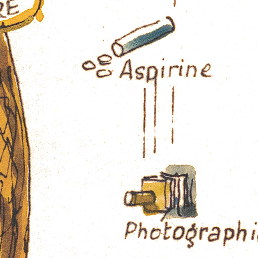 RE
Aspirine
Photographi